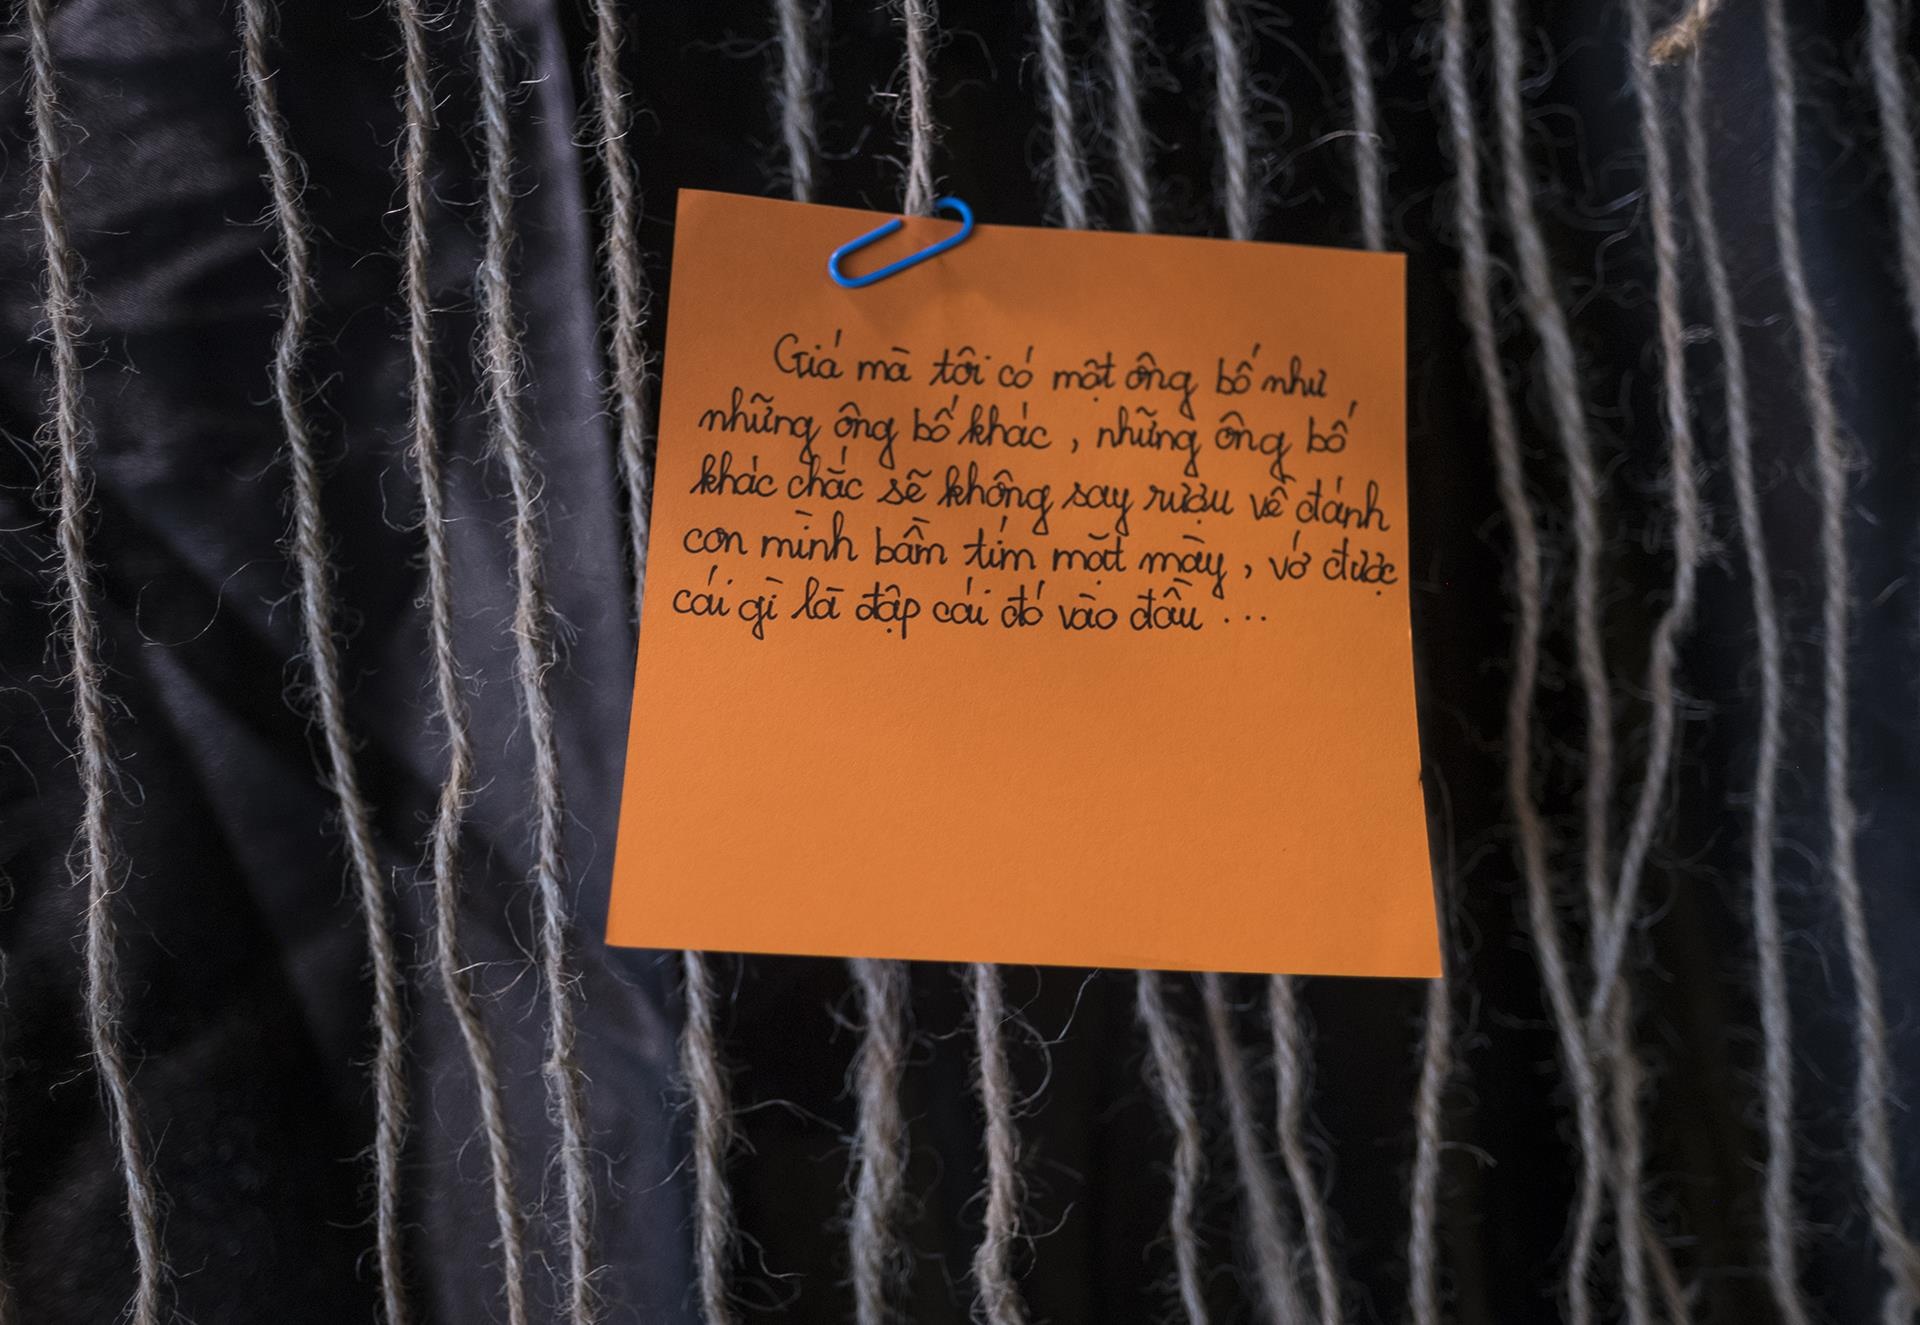 Giá mà tôi có một ông bố như
những ông bố khác, những ông bố
khác chắc sẽ không say rượu về đánh
con mình bầm tím mặt mày, vớ được
cái gì là đập cái đó vào đầu ...